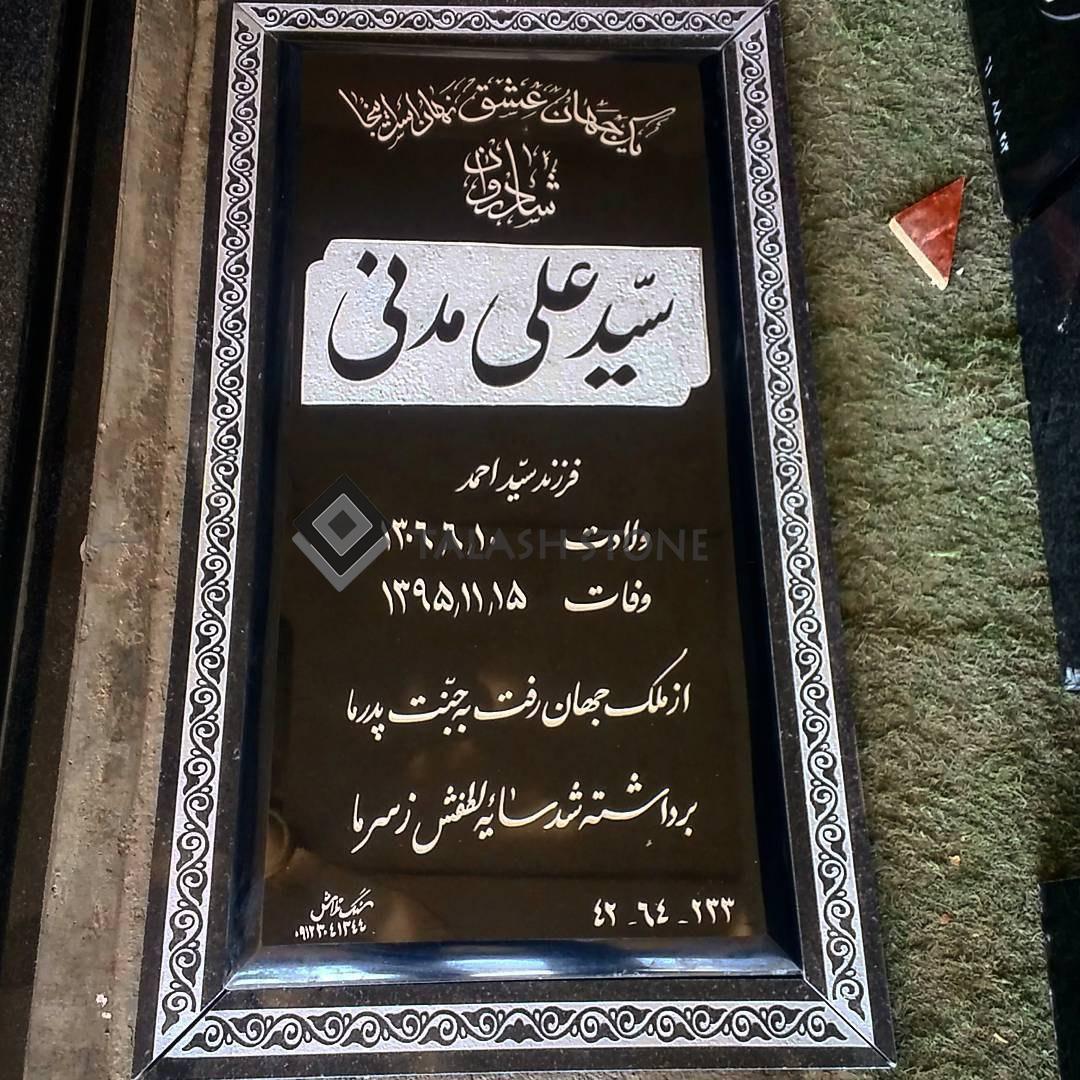 یک جهان عشق نهان است اینجا
شادروان
سیّد علی مدنی
فرزند سیّد احمد
ولادت ۱۳۰۶٫۶٫۱۰
TALASH STONE
وفات ۱۳۹۵٫۱۱٫۱۵
از ملک جهان رفت به جنّت پدر ما
برداشته شد سایهٔ لطفش ز سر ما
۴۲ - ۶۴ - ۲۳۳
سنگ تلاش
۰۹۱۲۳۰۴۱۳۴۴